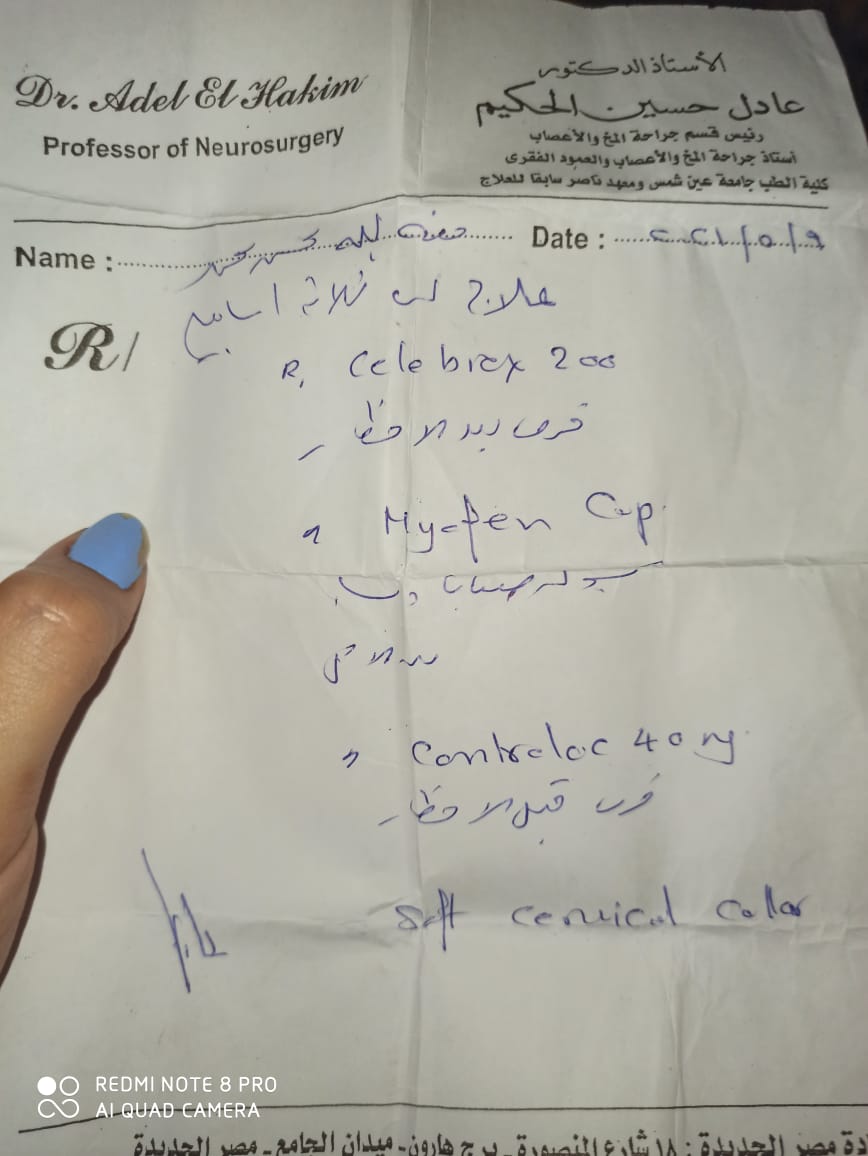 Dr. Adel El Hakim
Professor of Neurosurgery
الأستاذ الدكتور
عادل حسين الحكيم
رئيس قسم جراحة المخ والأعصاب
أستاذ جراحة المخ والأعصاب والعمود الفقرى
كلية الطب جامعة عين شمس ومعهد ناصر سابقا للعلاج
Name : Date : ٩/٥/٢٠٢٢
R/
علاج لمدة ثلاثة أسابيع
R, Celebrex 200
قرص بعد الافطار
Myofen Cap
كبسولة صباحا و
Controloc 40 mg
قرص قبل الافطار
Soft cervical collar
مصر الجديدة : ١٨ شارع المنصورة - برج هارون - ميدان الجامع - مصر الجديدة
REDMI NOTE 8 PRO
AI QUAD CAMERA